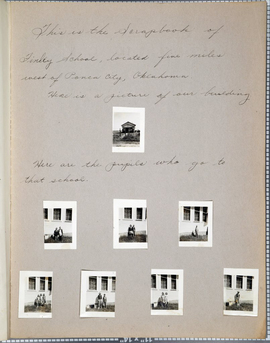 This is the Scrapbook of
School, located five miles
west of Ponca City, Oklahoma
Here is a picture of our building
Here are the pupils who go to
that school.